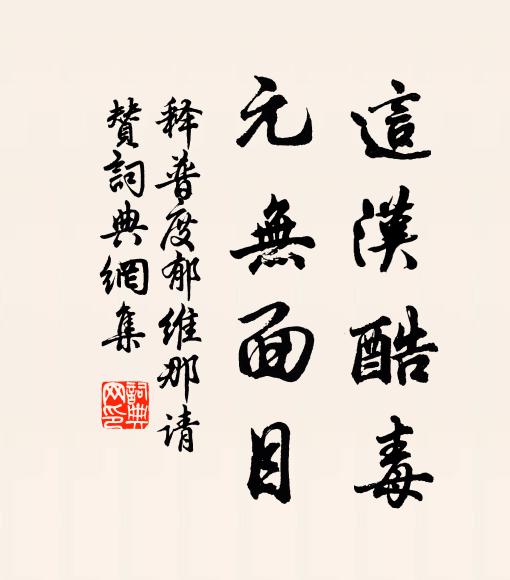 這漢酷毒
元無面目
释普度郁維那请
贊詞典網集
詞典
网印